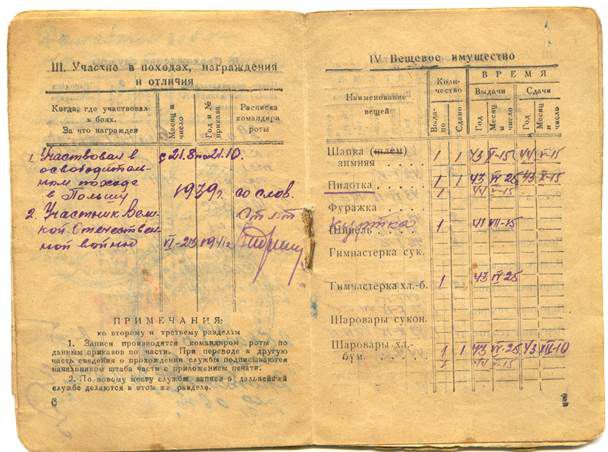 III. Участие в походах, награждения
и отличия
Когда, где участвовал
в боях.
За что награжден
Месяц и
число
Год и №
приказа
Расписка
командира
роты
1. Участвовал в с 21.8 по 21.10.
освободитель-
ном походе
в Польшу 1939г. со слов.
2. Участник Вели-
кой Отечествен-
ной войны VI- 1941г.
ПРИМЕЧАНИЯ:
ко второму и третьему разделам
1. Записи производятся командиром роты по
данным приказов по части. При переводе в другую
часть сведения о прохождении службы подписываются
начальником штаба части с приложением печати.
2. По новому месту службы записи о дальнейшей
службе делаются в этом же разделе.
6
IV. Вещевое имущество
Наименование
вещей
Коли-
чество
ВРЕМЯ
Выдачи
Сдачи
Выда-
но
Сдано
Год
Месяц
и число
Год
Месяц
и число
Шапка (шлем)
зимняя 1 1 43 43
Пилотка 1 1 43 43
1 44
Фуражка
Куртка
Шинель 1 41 VII-15
Гимнастерка сук.
43
Гимнастерка хл.-б. 1
Шаровары сукон.
Шаровары хл.-
бум. 1 1 43 43
1 44